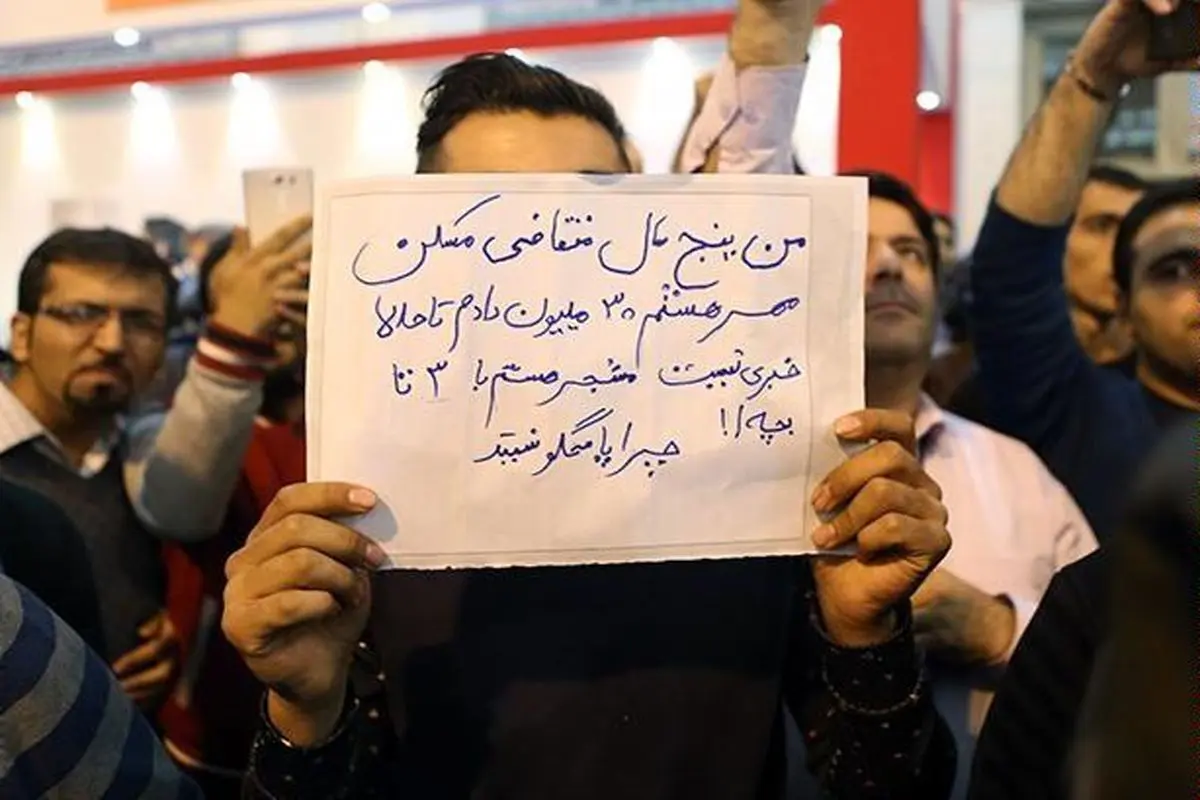 من پنج سال متقاضی مسکن
مهر هستم ۳۰ میلیون دادم تا حالا
خبری نیست مستجر هستم با ۳ تا
بچه !!
چرا پاسخگو نیستید